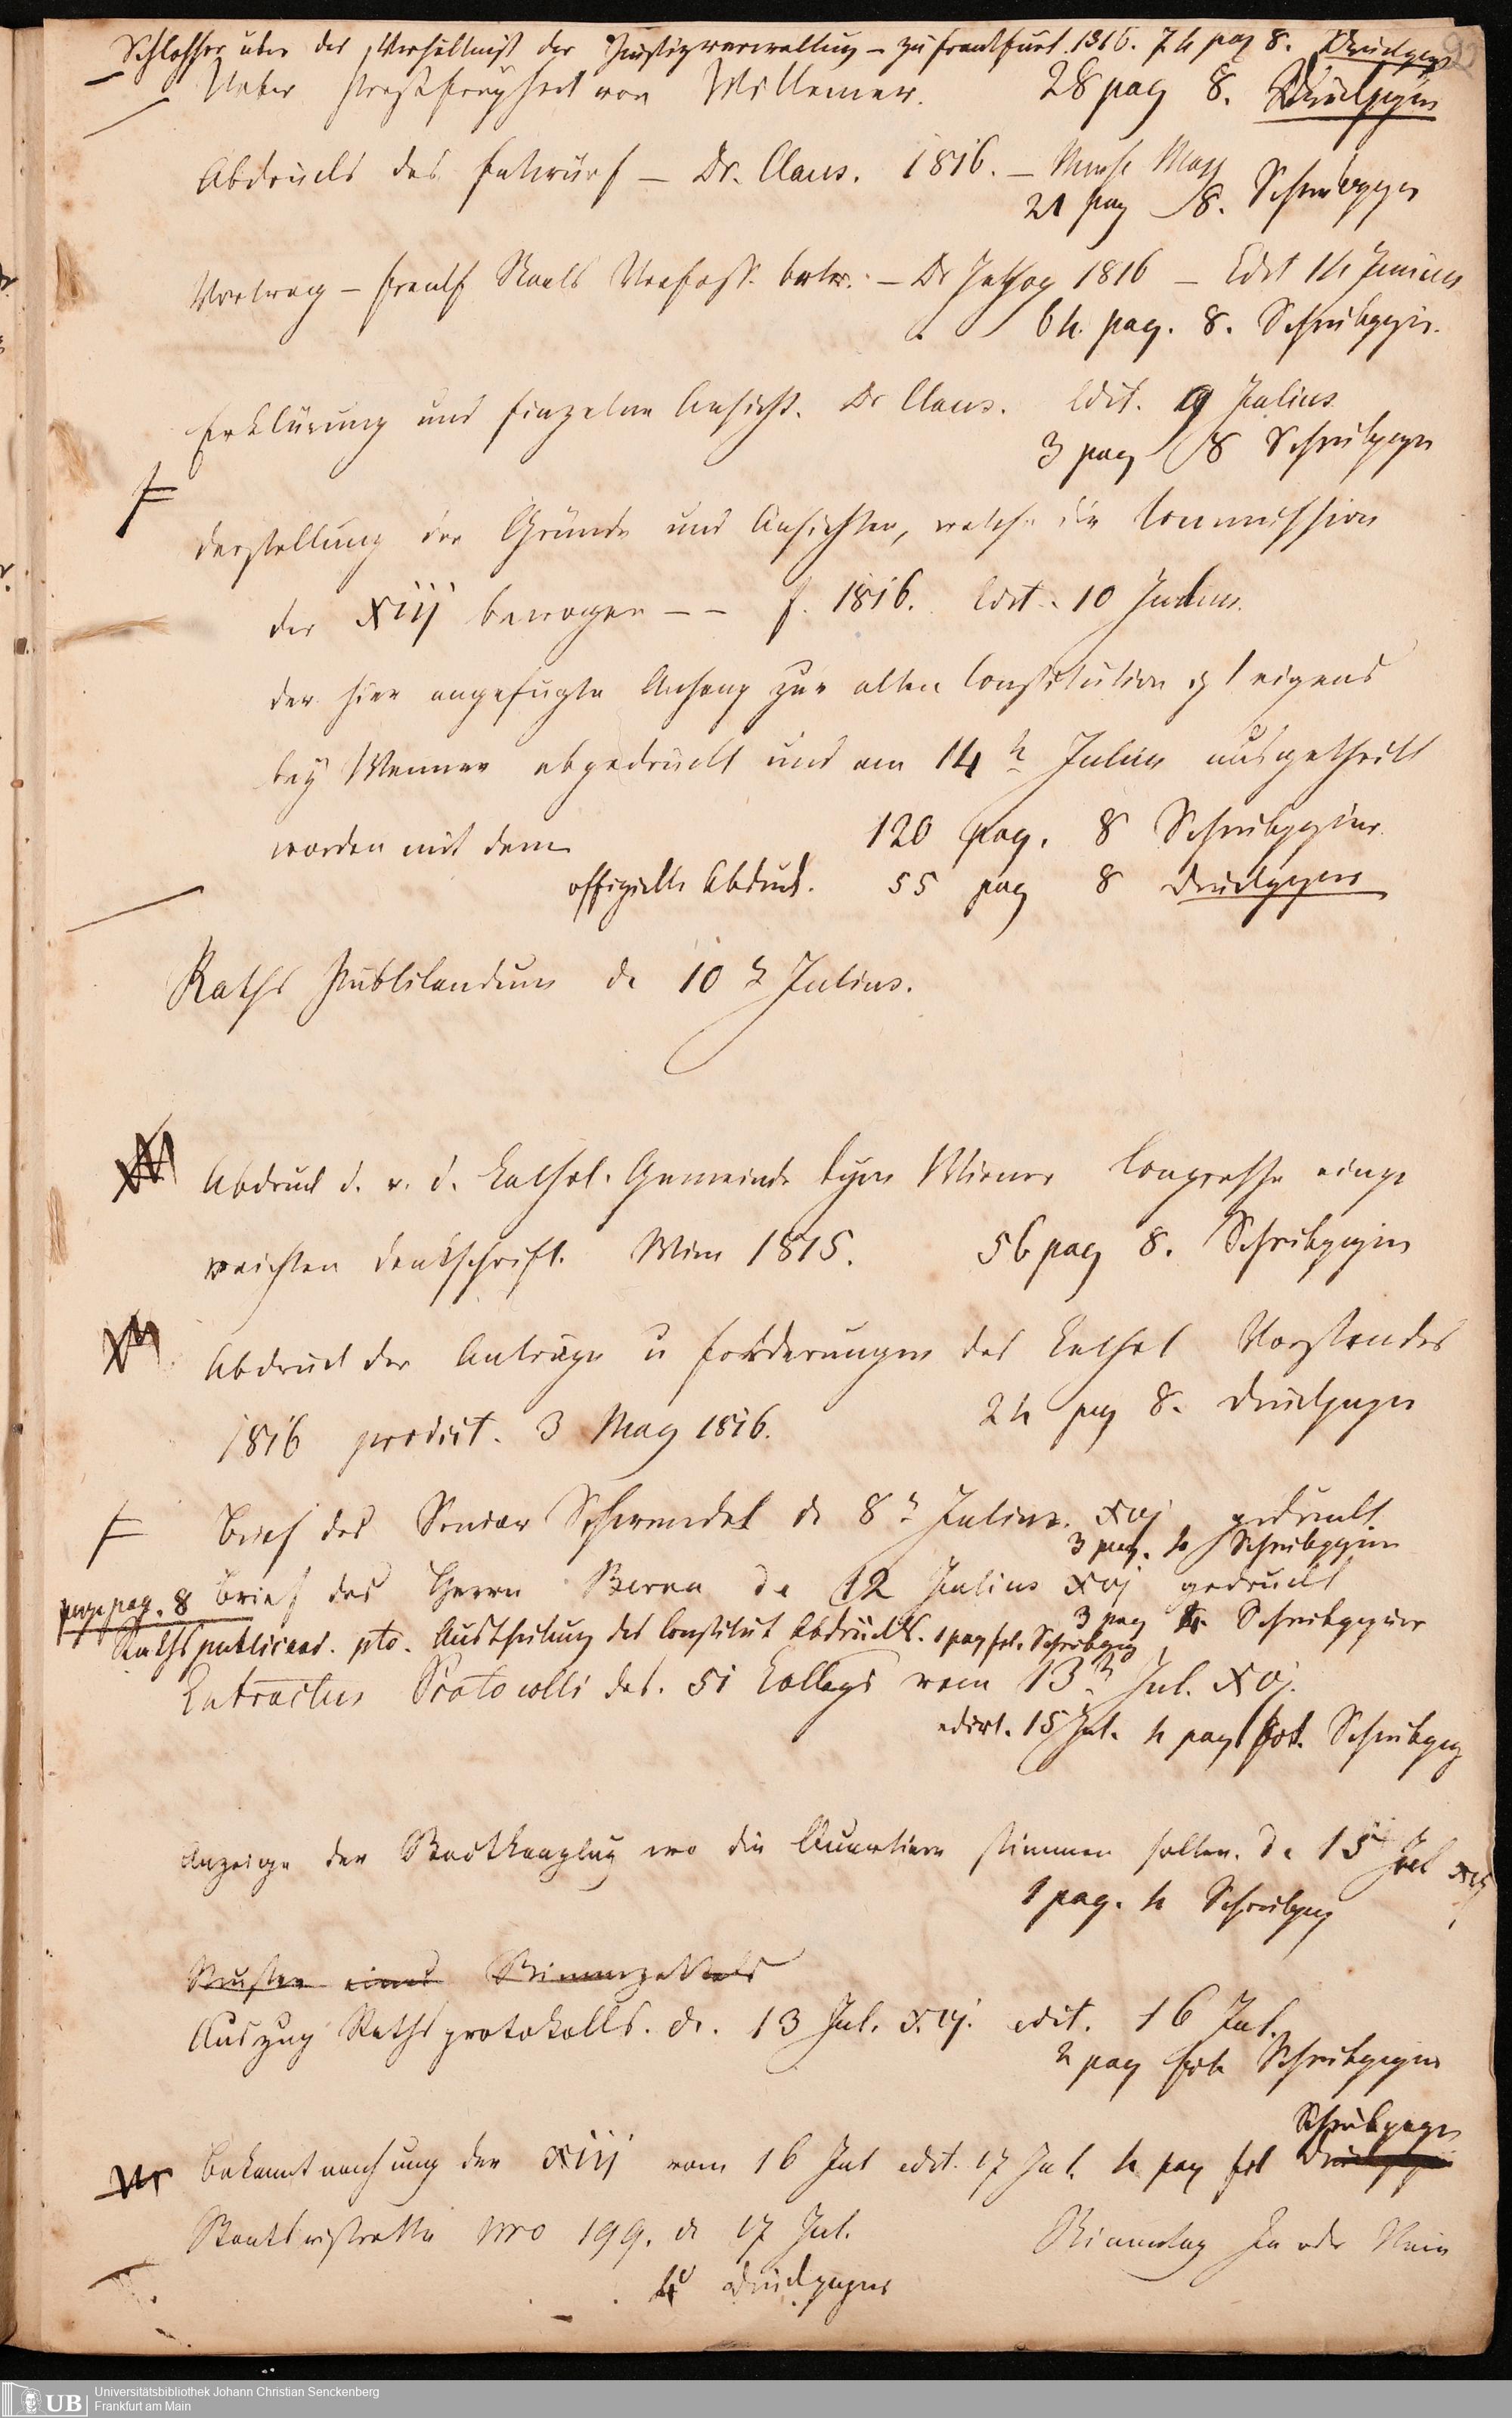 92
Schlosser über das Verhältniß der Justizverwaltung – zu Frankfurt. 1816. 74 pag 8. Druckpapier
Ueber Preßfreyheit von Willemer. 28 pag 8. Druckpapier
Abdruck des Entwurf – Dr. Claus. 1816. –
21 pag 8. Schreibpapier
Vortrag – Frankf. Staats Verfass. betr. – Dr 1816 – Edit 14 Junius
64 pag. 8. Schreibpapier.
Erklärung und einzelne Ansicht. Dr Claus. Edit. 9 Julius
3 pag 8 Schreibpapier
Darstellung der Gründe und Ansichten, welche die Commission
der XIIj bewogen – – f. 1816. Edit. 10 Julius.
der hier angefügte Anhang zur alten Constitution ist eigens
bey Wenner abgedruckt und am 14 t Julius ausgetheilt
worden mit dem 120 pag. 8 Schreibpapier.
offizielle Abdruck. 55 pag 8 Druckpapier
Raths Publicandum de 10 t Julius.
Abdruck d. v. d. Kathol. Gemeinde beym Wiener Congresse einge
reichten Denkschrift. Wien 1815. 56 pag 8. Schreibpapier
Abdruck der Anträge u Forderungen des Kathol Vorstandes
1816 prodiit. 3 May 1816. 24 pag 8. Druckpapier
Brief des Senior de 8 t Julius. xvj gedruckt
3 pag. 4 Schreibpapier
pag. 8 Brief des Herrn de 12 Julius xvj gedruckt
3 pag 4. Schreibpapier
Raths publicand. pto. Austheilung des Constitut Abdrucks. 1 pag fol. Schreibpapier
Extractus Protocolli des. 51 Collegs vom 13 t Jul. xvj.
edirt. 15 Jul. 4 pag fol. Schreibpapier
Anzeige der Stadtkanzley wo die Quartiere stimmen sollen. de 15 Jul xvj
1 pag. 4 Schreibpap
Muster eines Stimmzettels
Auszug Rathsprotokolls. de. 13 Jul. xvj. edit. 16 Jul.
4 pag fol Schreibpapier
Schreibpapier
Bekanntmachung der xiij vom 16 Jul edit. 17 Jul. 4 pag fol Druckpapier
Staatsristretto Nro 199. de 17 Jul. Stimmtag Ja oder Nein
4° Druckpapier
UB
Universitätsbibliothek Johann Christian Senckenberg
Frankfurt am Main